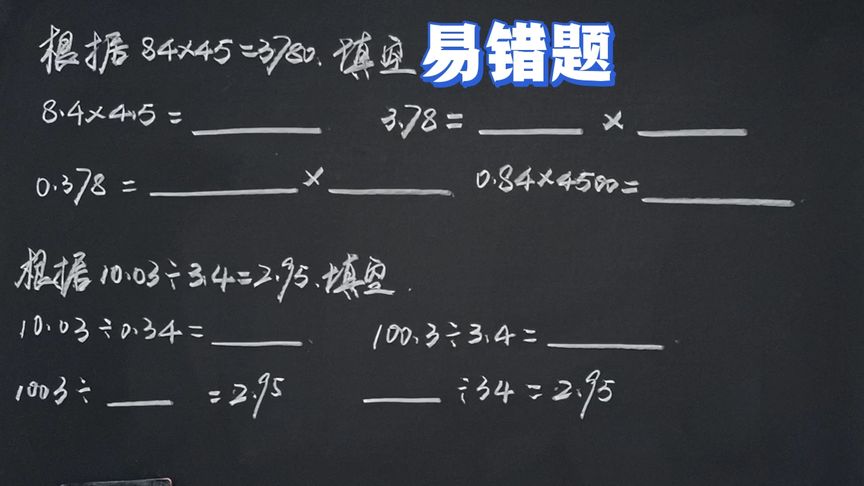 根据84×45=3780.填空 易错题
8.4×4.5=______ 3.78=______×______
0.378=______×______ 0.84×4500=______
根据10.03÷3.4=2.95.填空.
10.03÷0.34=______ 100.3÷3.4=______
1003÷____=2.95 ____÷34=2.95